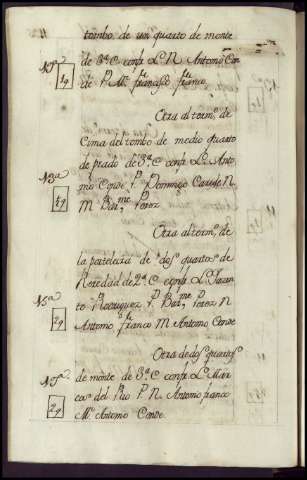 tombo de un quarto de monte
de 3ª C confr. L. N Antonio Con
de P. Mn. francisco franco
Otra al termº. de
Cima del tombo de medio quarto
de prado de 3ª C confr. L. Anto
nio Conde P. Domingo N.
M Barme. Perez
Otra al termº. de
la porteleira de dos quartos de
Heredad de 2ª C confr. L. Jacin
to Rodriguez P. Barme. Perez N
Antonio franco M Antonio Conde
Otra de dos quartos
de monte de 3ª C confr. L. Mar
cos del Rio P. N. Antonio franco
Mn. Antonio Conde